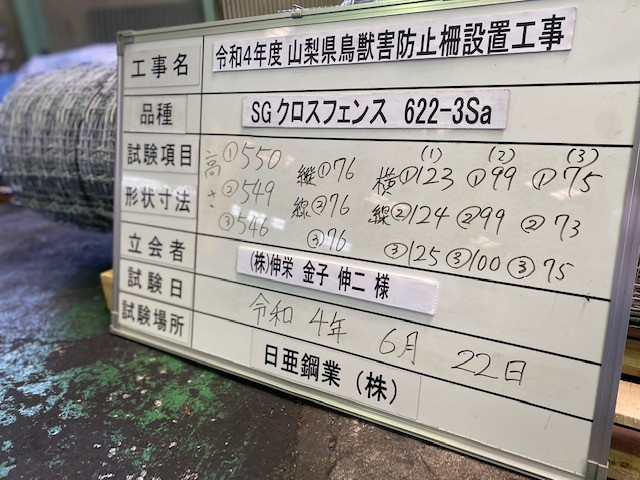 工事名 令和4年度 山梨県鳥獣害防止柵設置工事
品種 SGクロスフェンス 622-3Sa
(1) (2) (3)
試験項目 高さ ①550 縦線 ①76 横線 ①123 ①99 ①75
形状寸法 ②549 ②76 ②124 ②99 ②73
③546 ③76 ③125 ③100 ③75
立会者 (株)伸栄 金子 伸二 様
試験日 令和 4年 6月 22日
試験場所 日亜鋼業 (株)